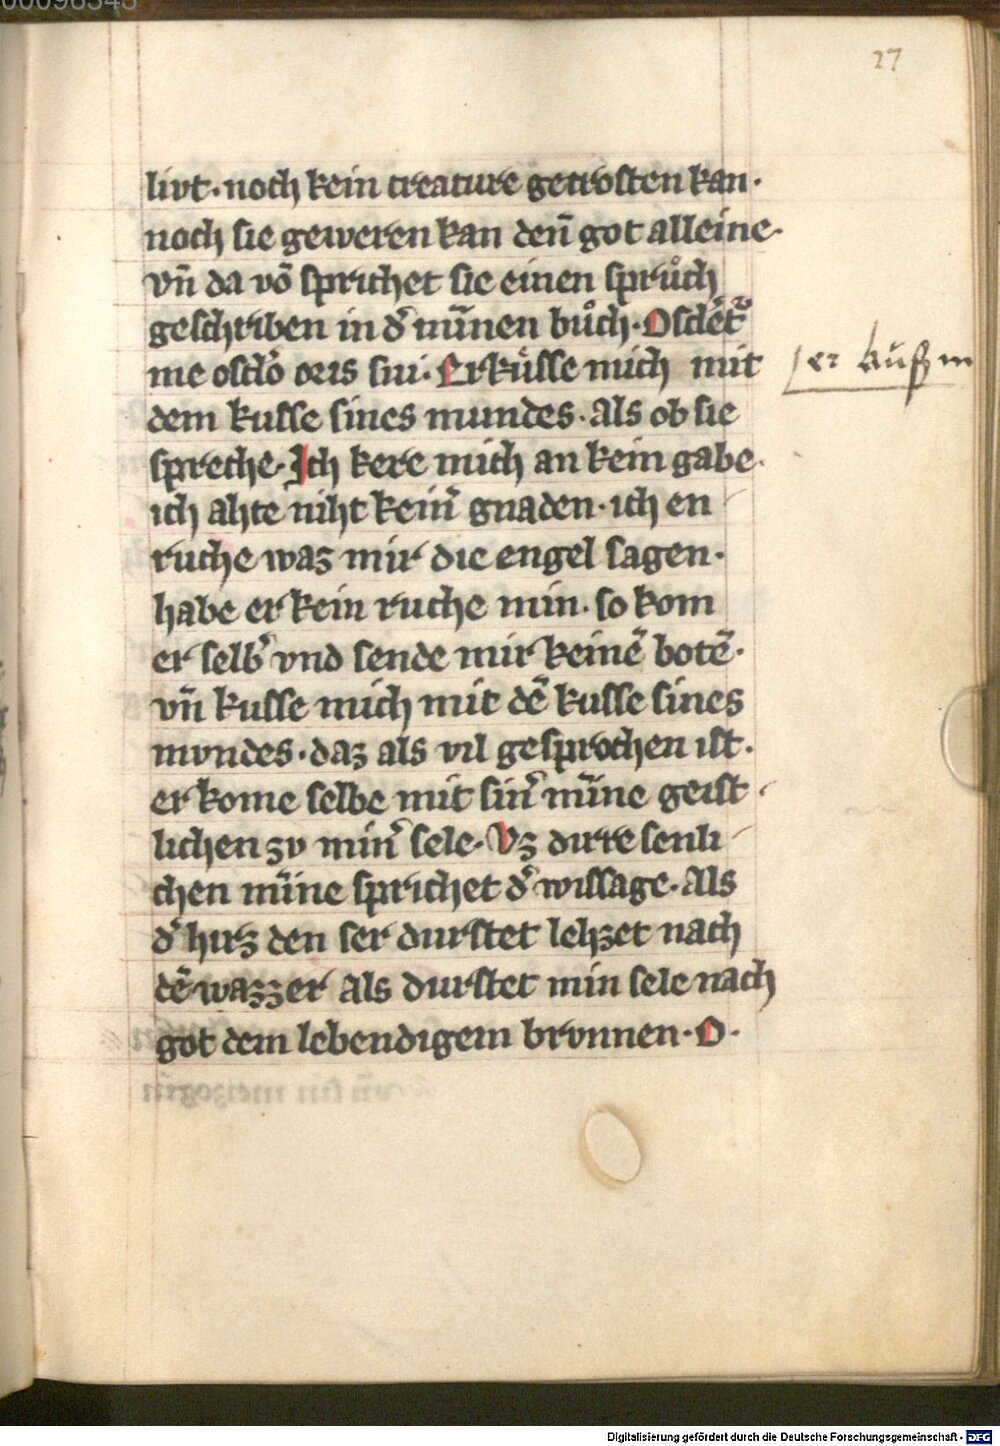 27
livt· noch kein creature getrosten kan·
noch sie geweren kan den̄ got alleine·
vn̄ da vō sprichet sie einen sprůch
geschriben in d̾ mīnen bůch· Osclēt᷑
me osclō oris sui· Er kuͤsse mich mit
er kuͤß m
dem kusse sines mundes· als ob sie
spreche· Ich kere mich an kein gabe·
ich ahte niht kein̾ gnaden· ich en
ruche waz mir die engel sagen·
habe er kein ruche min· so kom
er selb̾ vnd sende mir keinē botē·
vn̄ kusse mich mit dē kusse sines
mvndes· daz als vil gesprochen ist·
er kome selbe mit sin̾ mīne geist
lichen zv min̾ sele· Vz dirre senli
chen mīne sprichet d̾ wissage· Als
d̾ hirz den ser durstet lehzet nach
dē wazzer als durstet min sele nach
got dem lebendigem brvnnen· O·
Digitalisierung gefördert durch die Deutsche Forschungsgemeinschaft - DFG